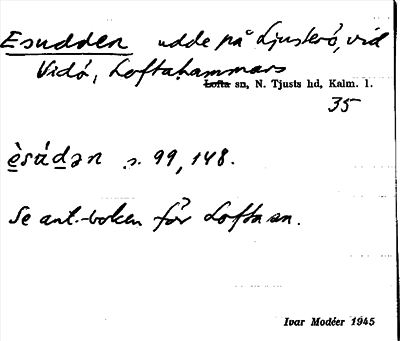 Esudden udde på Ljusterö, vid
Vidö, Loftahammars
Lofta sn, N. Tjusts hd, Kalm. l.
35
èsúdən s. 99, 148.
Se ant.-boken för Lofta sn.
Ivar Modéer 1945